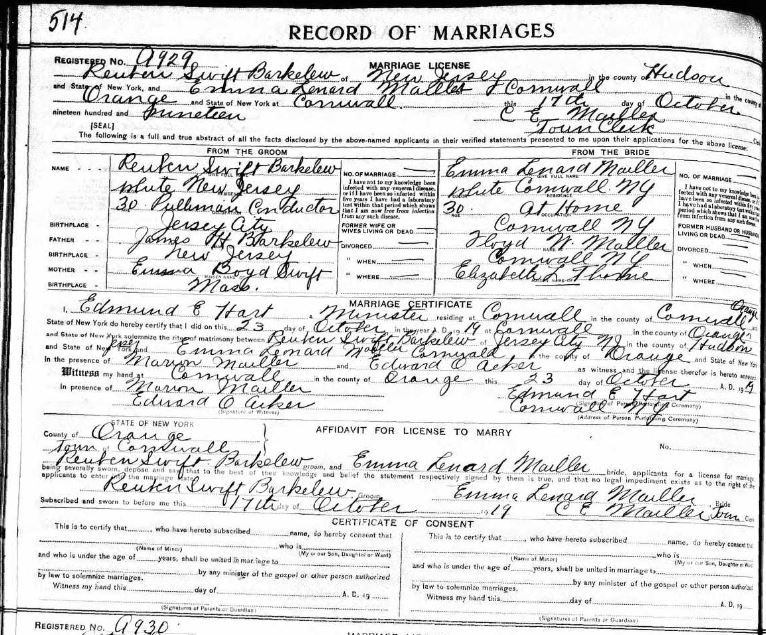 514
RECORD OF MARRIAGES
REGISTERED No. A929
MARRIAGE LICENSE
Reuben Swift Barkelew of New Jersey in the county of Hudson
and State of New York, and Emma Lenard Mailler of Cornwall in the county of
Orange and State of New York at Cornwall this 17th day of October
nineteen hundred and nineteen C E Mailler
[SEAL] Town Clerk
The following is a full and true abstract of all the facts disclosed by the above-named applicants in their verified statements presented to me upon their applications for the above license:
FROM THE GROOM
NAME Reuben Swift Barkelew
White New Jersey
30 Pullman Conductor
BIRTHPLACE Jersey City
FATHER James H Barkelew
BIRTHPLACE New Jersey
MOTHER Emma Boyd Swift
BIRTHPLACE Mass.
NO. OF MARRIAGE
I have not to my knowledge been
infected with any venereal disease,
or if I have been so infected within
five years I have had a laboratory
test within that period which shows
that I am now free from infection
from any such disease.
FORMER WIFE OR
WIVES LIVING OR DEAD
DIVORCED
" WHEN
" WHERE
FROM THE BRIDE
Emma Lenard Mailler
White Cornwall NY
30 At Home
Cornwall NY
Floyd W. Mailler
Cornwall NY
Elizabeth L Thorne
NO. OF MARRIAGE
I have not to my knowledge been
FORMER HUSBAND OR
LIVING OR DEAD
DIVORCED
" WHEN
" WHERE
MARRIAGE CERTIFICATE
I, Edmund E Hart a Minister residing at Cornwall in the county of Orange
State of New York do hereby certify that I did on this 23 day of October in the year A. D. 19 19 at Cornwall in the county of Orange
and State of New York solemnize the rites of matrimony between Reuben Swift Barkelew of Jersey City NJ in the county of Hudson
and State of New Jersey and Emma Lenard Mailler of Cornwall in the county of Orange and State of New York
in the presence of Marion Mailler and Edward O Acker as witness and the license therefor is hereto
Witness my hand at Cornwall in the county of Orange this 23 day of October A. D. 19 19
in presence of Marion Mailler Edmund E Hart
Edward O Acker Cornwall NY
(Signature of Witness) (Address of Person Performing Ceremony)
STATE OF NEW YORK
AFFIDAVIT FOR LICENSE TO MARRY
County of Orange No.
Town Cornwall
Reuben Swift Barkelew groom, and Emma Lenard Mailler bride, applicants for a license for marriage
being severally sworn, depose and say that to the best of their knowledge and belief the statement respectively signed by them is true, and that no legal impediment exists as to the right of the
applicants to enter into the marriage state.
Reuben Swift Barkelew Groom Emma Lenard Mailler Bride
Subscribed and sworn to before me this 17th day of October 1919 C E Mailler Town
CERTIFICATE OF CONSENT
This is to certify that who have hereto subscribed name, do hereby consent that
(Name of Minor) who is (My or our Son, Daughter or Ward)
and who is under the age of years, shall be united in marriage to
by any minister of the gospel or other person authorized
by law to solemnize marriages.
Witness my hand this day of A. D. 19
(Signatures of Parents or Guardian)
This is to certify that who have hereto subscribed name, do hereby consent that
(Name of Minor) who is (My or our Son, Daughter or Ward)
and who is under the age of years, shall be united in marriage to
by any minister of the gospel or other person authorized
by law to solemnize marriages.
Witness my hand this day of A. D. 19
(Signatures of Parents or Guardian)
REGISTERED No. A930